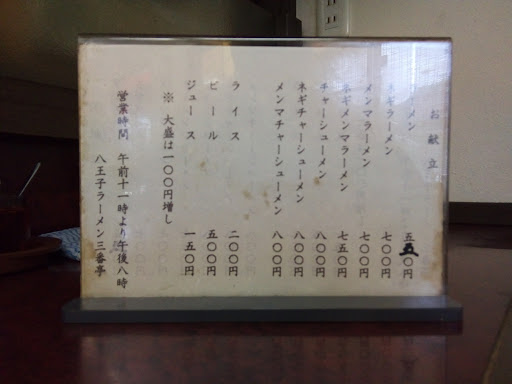 お献立
ーメン 五五〇円
ネギラーメン 七〇〇円
メンマラーメン 七〇〇円
ネギメンマラーメン 七五〇円
チャーシューメン 八〇〇円
ネギチャーシューメン 八〇〇円
メンマチャーシューメン 八〇〇円
ライス 二〇〇円
ビール 五〇〇円
ジュース 一五〇円
※ 大盛は一〇〇円増し
営業時間 午前十一時より午後八時
八王子ラーメン三番亭